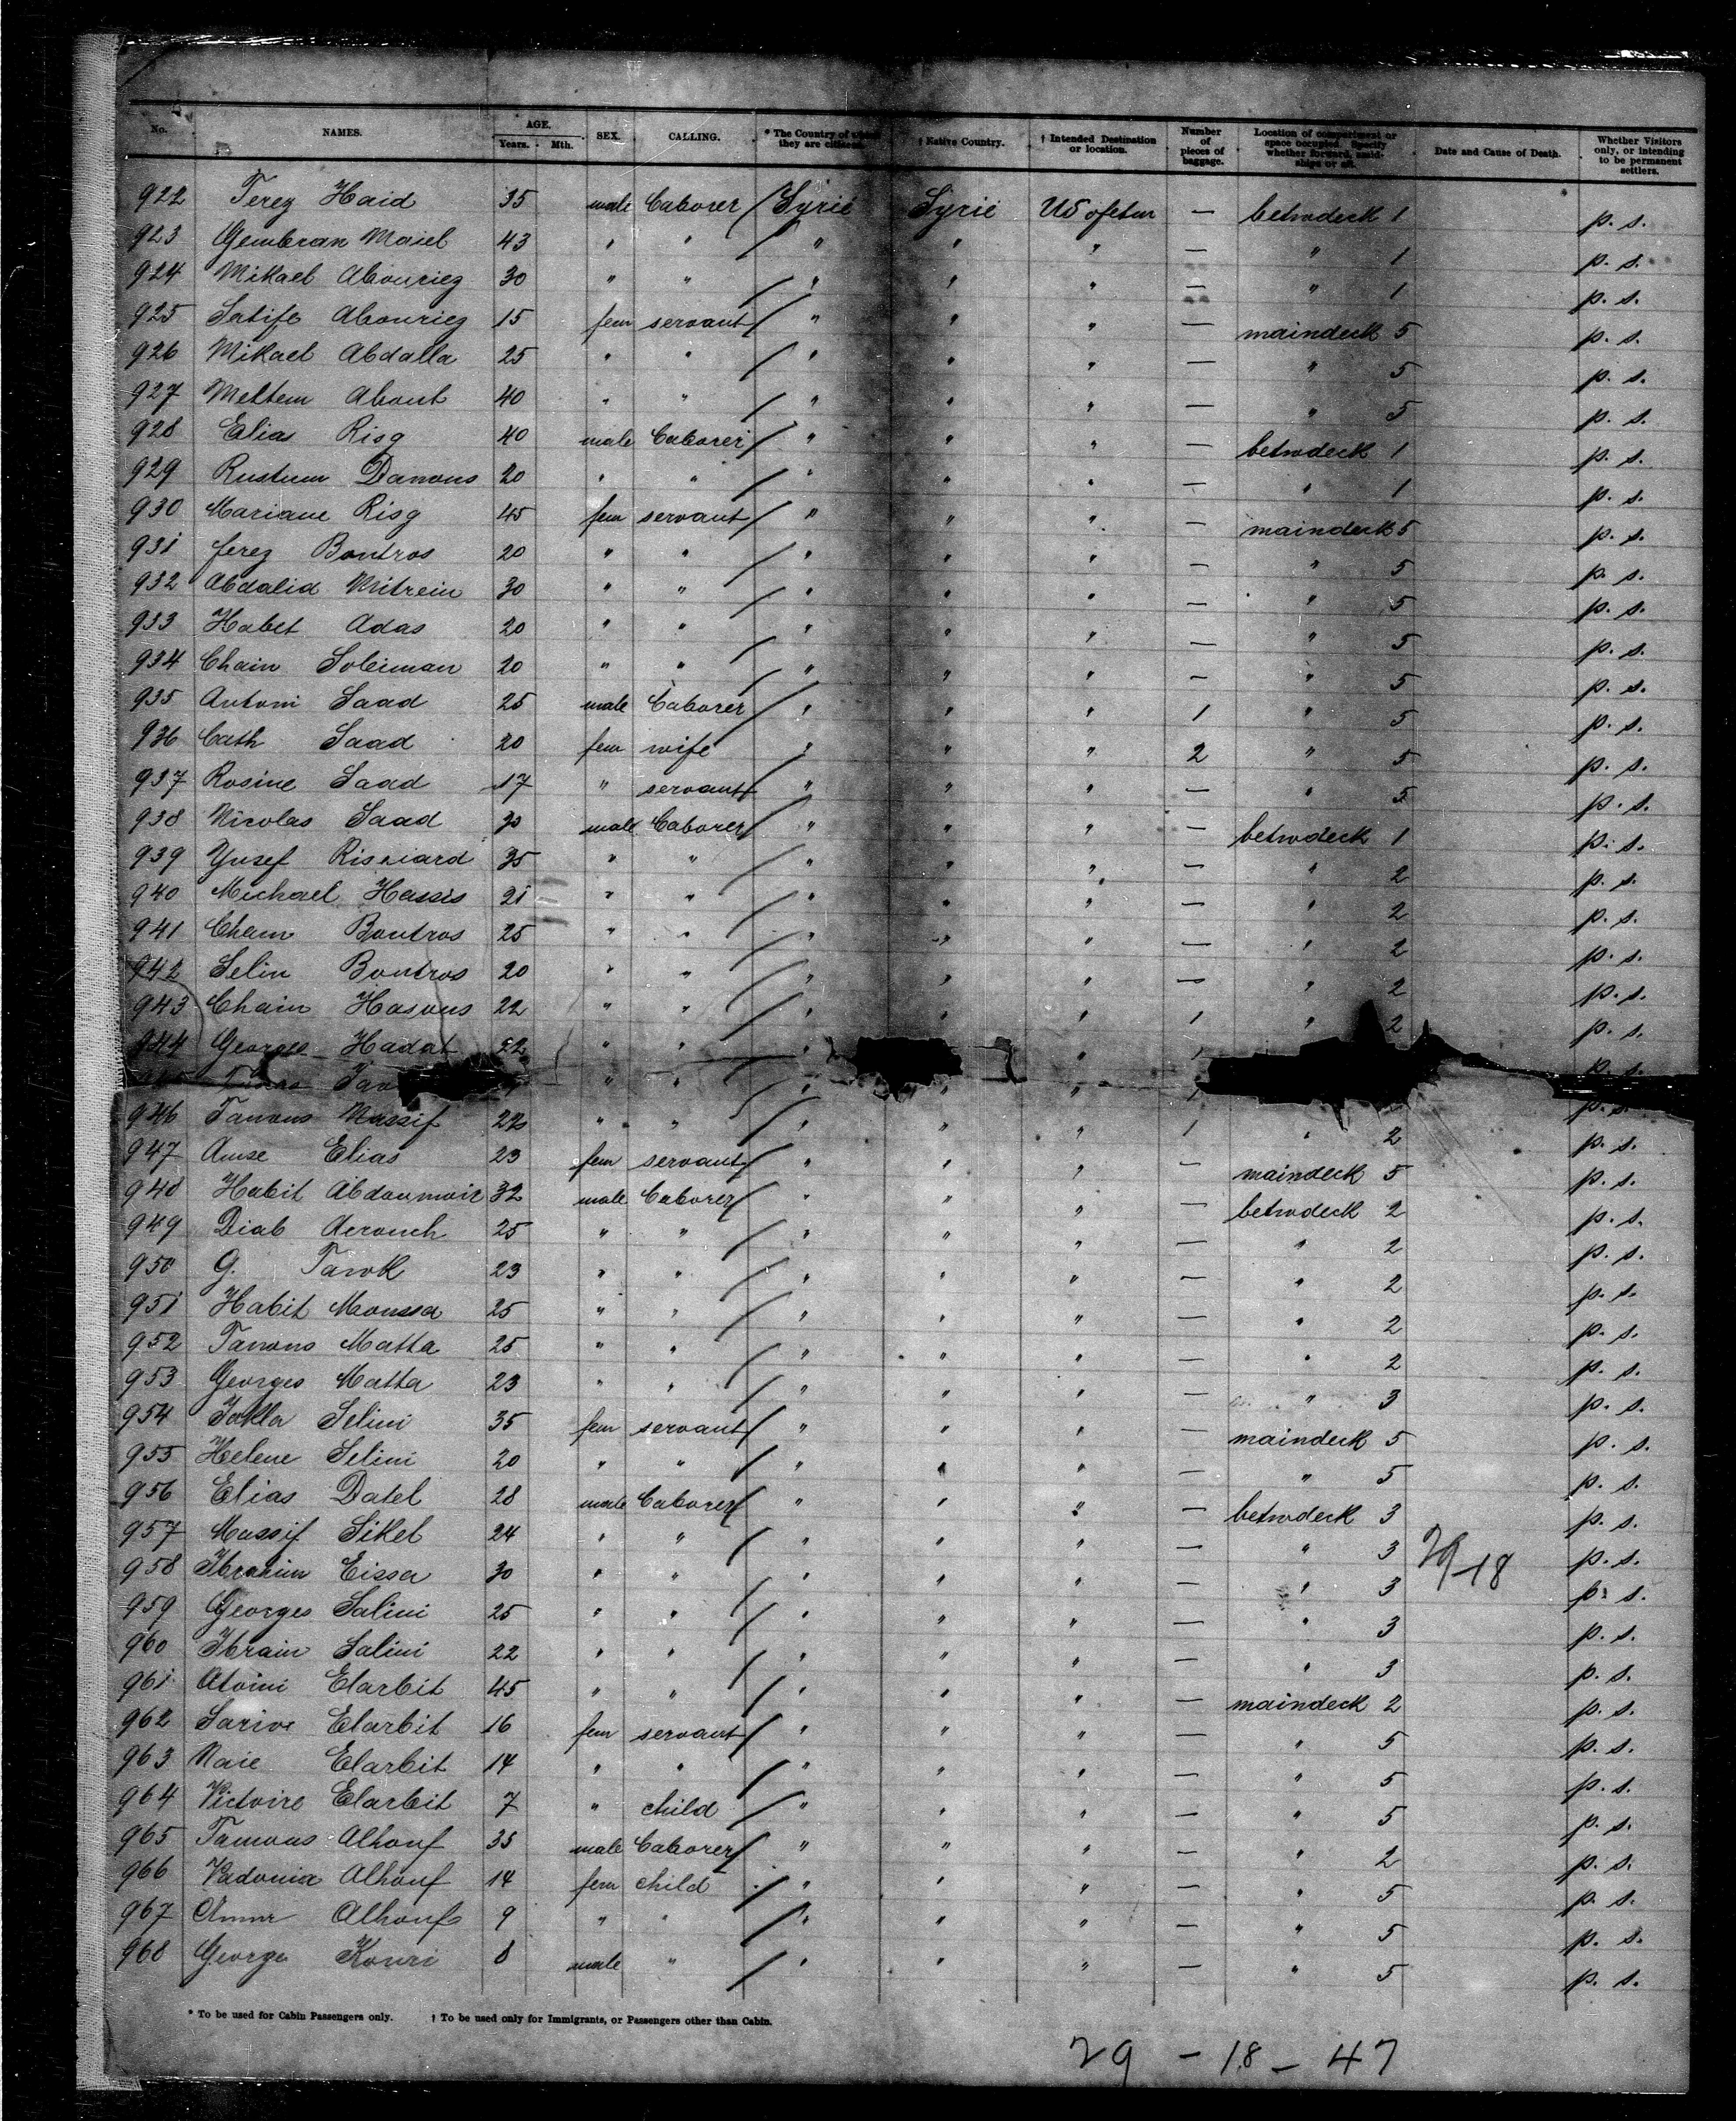 No. NAMES. AGE. Years. Mth. SEX. CALLING. * The Country of which they are citizens. † Native Country. † Intended Destination or location. Number of pieces of baggage. Location of compartment or space occupied. Specify whether forward, amidships or aft. Date and Cause of Death. Whether Visitors only, or intending to be permanent settlers.
922 Ferez Haid 35 male Laborer Syrie Syrie US of — betwdeck 1 p. s.
923 Gembran Maiel 43 " " " " " — " 1 p. s.
924 Mikael Abourieg 30 " " " " " — " 1 p. s.
925 Latife Abourieg 15 fem servant " " " — maindeck 5 p. s.
926 Mikael Abdalla 25 " " " " " — " 5 p. s.
927 Meltem About 40 " " " " " — " 5 p. s.
928 Elias Risg 40 male Laborer " " " — betwdeck 1 p. s.
929 Rustum Danous 20 " " " " " — " 1 p. s.
930 Mariane Risg 45 fem servant " " " — maindeck 5 p. s.
931 ferez Boutros 20 " " " " " — " 5 p. s.
932 Abdalid Mitrein 30 " " " " " — " 5 p. s.
933 Habet Adas 20 " " " " " — " 5 p. s.
934 Chain Soleiman 20 " " " " " — " 5 p. s.
935 Antoni Saad 25 male Laborer " " " 1 " 5 p. s.
936 Cath Saad 20 fem wife " " " 2 " 5 p. s.
937 Rosine Saad 17 " servant " " " — " 5 p. s.
938 Nicolas Saad 30 male Laborer " " " — betwdeck 1 p. s.
939 Yusef 35 " " " " " — " 2 p. s.
940 Michael Hassis 21 " " " " " — " 2 p. s.
941 Cham Boutros 25 " " " " " — " 2 p. s.
942 Selin Boutros 20 " " " " " — " 2 p. s.
943 Chain Hasous 22 " " " " " 1 " 2 p. s.
944 Georges Hadat 22 " " " " p. s.
" " " " p. s.
946 Tanous Nassif 22 " " " " " 1 " 2 p. s.
947 Amse Elias 23 fem servant " " " — maindeck 5 p. s.
948 Habit Abdoumoir 32 male Laborer " " " — betwdeck 2 p. s.
949 Diab Acrouch 25 " " " " " — " 2 p. s.
950 G. Tawk 23 " " " " " — " 2 p. s.
951 Habit Moussa 25 " " " " " — " 2 p. s.
952 Tanous Matta 25 " " " " " — " 2 p. s.
953 Georges Matta 23 " " " " " — " 3 p. s.
954 Takla Selini 35 fem servant " " " — maindeck 5 p. s.
955 Helene Selini 20 " " " " " — " 5 p. s.
956 Elias Datel 28 male Laborer " " " — betwdeck 3 p. s.
957 Massif Sikel 24 " " " " " — " 3 p. s.
29-18
958 Ibrahim Eissa 30 " " " " " — " 3 p. s.
959 Georges Salini 25 " " " " " — " 3 p. s.
960 Ibrain Salini 22 " " " " " — " 3 p. s.
961 Atoini Elarbit 45 " " " " " — maindeck 2 p. s.
962 Sarive Elarbit 16 fem servant " " " — " 5 p. s.
963 Naie Elarbit 14 " " " " " — " 5 p. s.
964 Victoire Elarbit 7 " child " " " — " 5 p. s.
965 Tamous Alhouf 35 male Laborer " " " — " 2 p. s.
966 Vadonia Alhouf 14 fem child " " " — " 5 p. s.
967 Alhouf 9 " " " " " — " 5 p. s.
968 George Kouri 8 male " " " " — " 5 p. s.
* To be used for Cabin Passengers only. † To be used only for Immigrants, or Passengers other than Cabin.
29 - 18 - 47